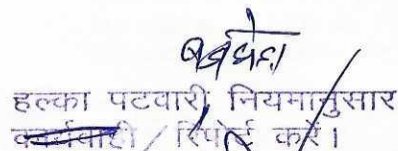 हल्का पटवारी नियमानुसार
कार्यवाही / रिपोर्ट करें।